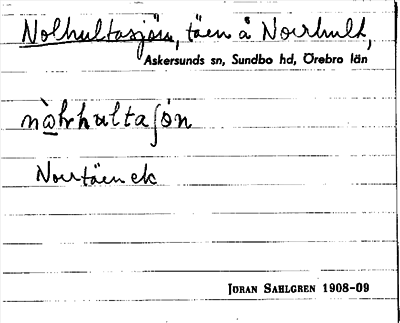 Nolhultasjön, täen å Norrhult,
Askersunds sn, Sundbo hd, Örebro län
nòlrhultaʃön
Norrtäen ek
JÖRAN SAHLGREN 1908-09